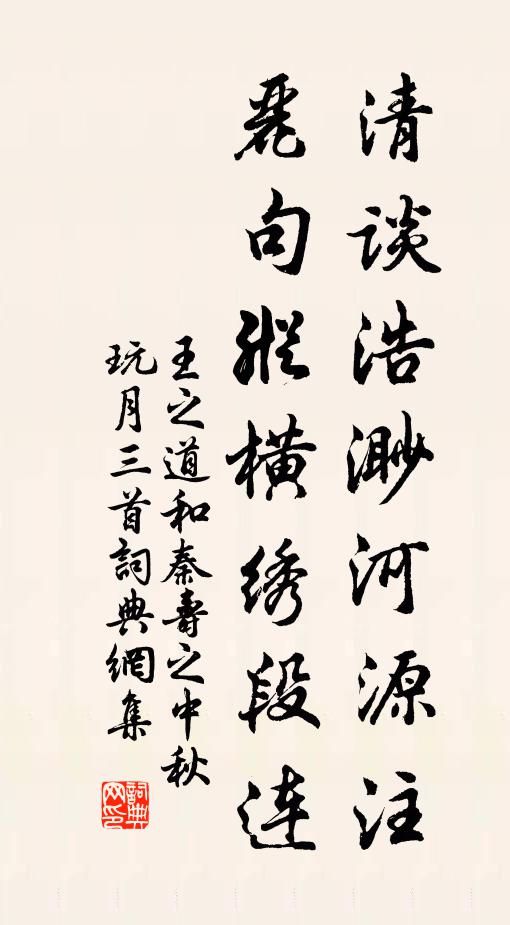 清談浩渺河源注
麗句縱橫绣段连
王之道和秦壽之中秋
玩月三首詞典網集
詞典网印